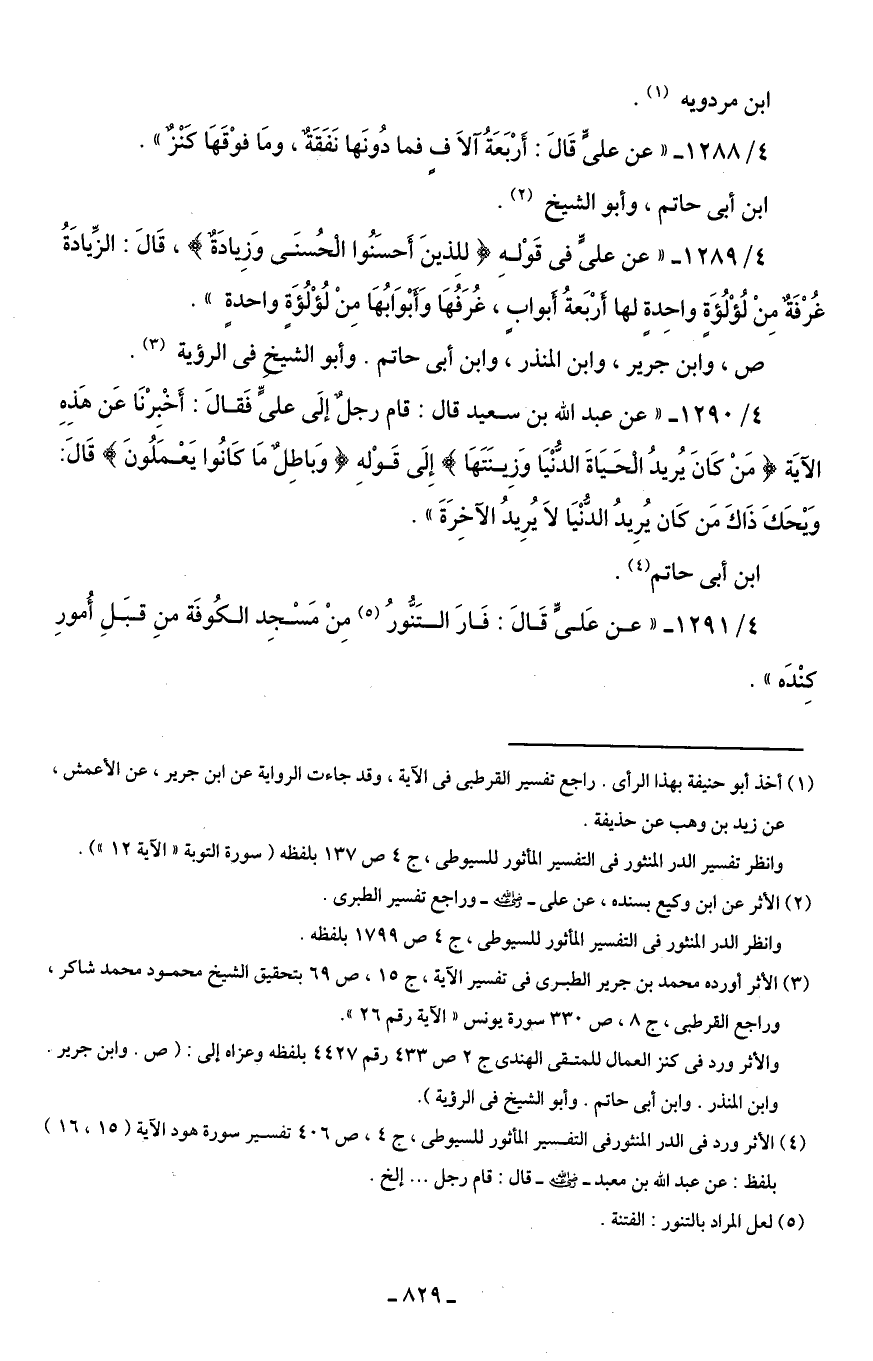 ابن مردويه (١) .
٤/ ١٢٨٨ـ « عن علىٍّ قَالَ : أَرْبَعَةُ آلاَ فٍ فما دُونَها نَفَقَةٌ ، ومَا فوْقَهَا كَنْزٌ » .
ابن أبى حاتم ، وأبو الشيخ (٢) .
٤/ ١٢٨٩ـ « عن علىٍّ فى قَوْلِهِ ﴿ للذينَ أَحسَنُوا الْحُسنَى وَزِيادَةٌ ﴾ ، قَالَ : الزِّيادَةُ
غُرْفَةٌ مِنْ لُؤْلُؤَةٍ واحدةٍ لها أرْبَعةُ أبوابٍ ، غُرَفُهَا وَأَبْوَابُهَا مِنْ لُؤْلُؤَةٍ واحدةٍ » .
ص ، وابن جرير ، وابن المنذر ، وابن أبى حاتم . وأبو الشيخِ فى الرؤية (٣) .
٤/ ١٢٩٠ـ « عن عبد الله بن سعيد قال : قام رجلٌ إلَى علىٍّ فَقَالَ : أَخْبِرْنَا عَن هَذِهِ
الآيَة ﴿ مَنْ كَانَ يُرِيدُ الْحَيَاةَ الدُّنْيَا وَزِينَتَهَا ﴾ إِلَى قَوْلِهِ ﴿ وَبَاطِلٌ مَا كَانُوا يَعْمَلُونَ ﴾ قَالَ:
وَيْحَكَ ذَاكَ مَن كان يُرِيدُ الدُّنْيَا لاَ يُرِيدُ الآخِرَةَ » .
ابن أبى حاتم(٤) .
٤/ ١٢٩١ـ « عن عَلىٍّ قَالَ : فَارَ التَنُّورُ (٥) مِنْ مَسْجِدِ الكُوفَة منِ قِبَلِ أُمورِ
كِنْدَه » .
(١) أخذ أبو حنيفة بهذا الرأى . راجع تفسير القرطبى فى الآية ، وقد جاءت الرواية عن ابن جرير ، عن الأعمش ،
عن زيد بن وهب عن حذيفة .
وانظر تفسير الدر المنثور فى التفسير المأثور للسيوطى ، ج ٤ ص ١٣٧ بلفظه ( سورة التوبة « الآية ١٢ ») .
(٢) الأثر عن ابن وكيع بسنده ، عن على ـ رضي الله عنه ـ وراجع تفسير الطبرى .
وانظر الدر المنثور فى التفسير المأثور للسيوطى ، ج ٤ ص ١٧٩٩ بلفظه .
(٣) الأثر أورده محمد بن جرير الطبرى فى تفسير الآية ، ج ١٥ ، ص ٦٩ بتحقيق الشيخ محمود محمد شاكر ،
وراجع القرطبى ، ج ٨ ، ص ٣٣٠ سورة يونس « الآية رقم ٢٦ ».
والأثر ورد فى كنز العمال للمتقى الهندى ج ٢ ص ٤٣٣ رقم ٤٤٢٧ بلفظه وعزاه إلى : ( ص . وابن جرير .
وابن المنذر . وابن أبى حاتم . وأبو الشيخ فى الرؤية ).
(٤) الأثر ورد فى الدر المنثورفى التفسير المأثور للسيوطى ، ج ٤ ، ص ٤٠٦ تفسير سورة هود الآية ( ١٥ ، ١٦ )
بلفظ : عن عبد الله بن معبد ـ رضي الله عنه ـ قال : قام رجل ... إلخ .
(٥) لعل المراد بالتنور : الفتنة .
ـ ٨٢٩ ـ